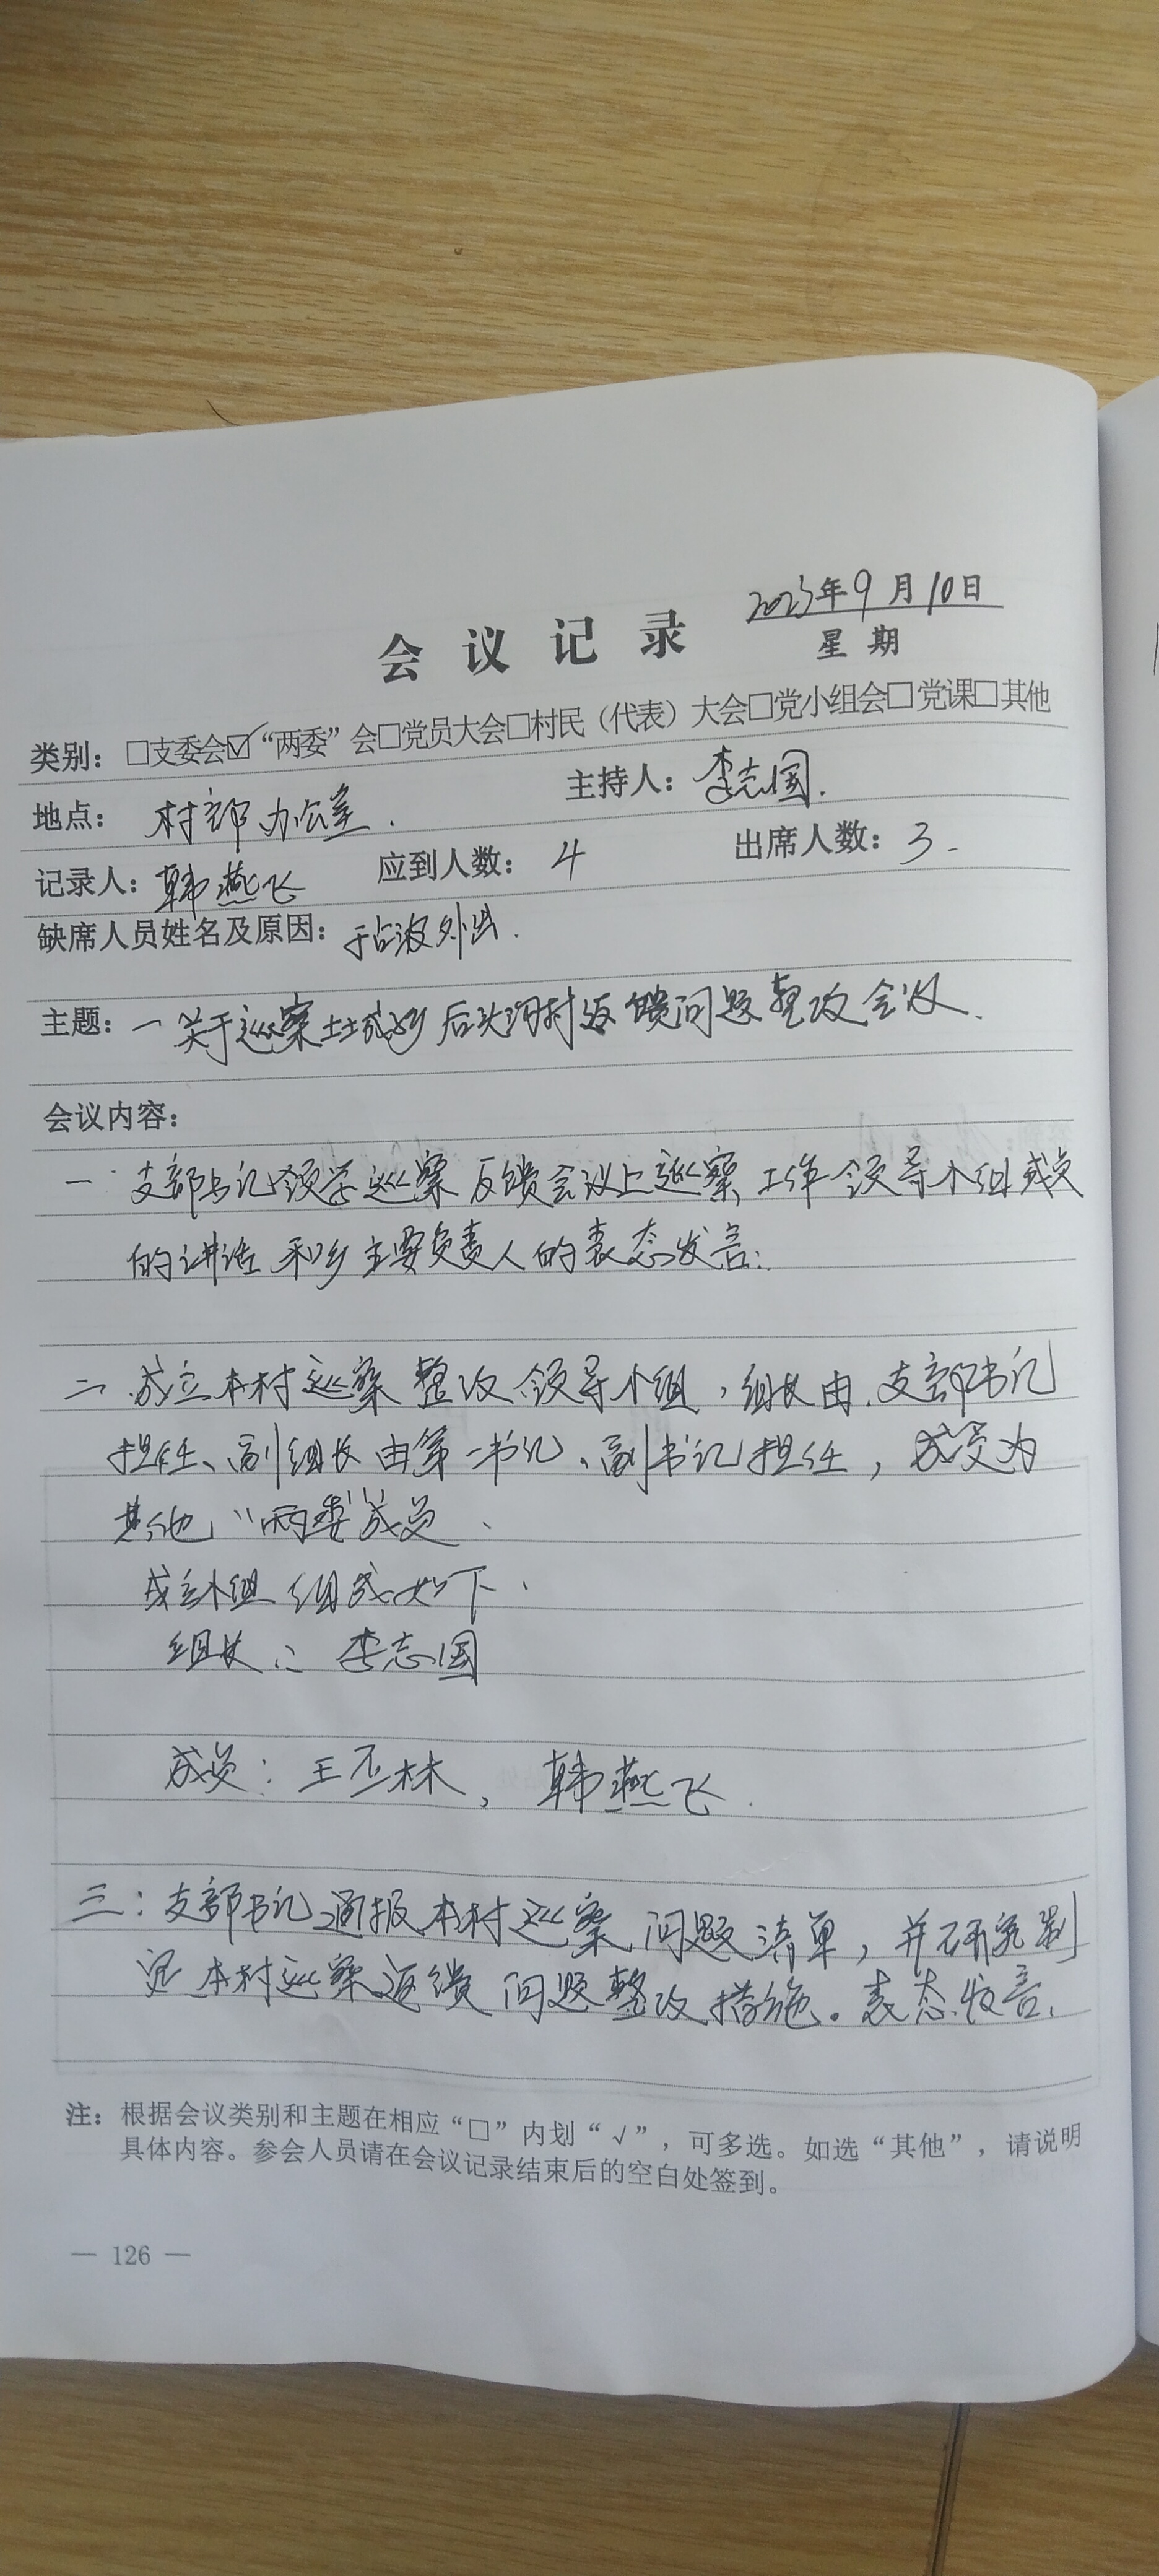 2023年9月10日
会议记录
星期
类别：□支委会☑“两委”会□党员大会□村民（代表）大会□党小组会□党课□其他
地点：村部办公室.
主持人：李志国.
记录人：韩燕飞
应到人数：4
出席人数：3
缺席人员姓名及原因：于占波外出.
主题：一关于巡察土城乡后头沟村返馈问题整改会议.
会议内容：
一 支部书记领学巡察反馈会议上巡察工作领导小组成员
的讲话和乡主要负责人的表态发言.
二、成立本村巡察整改领导小组，组长由支部书记
担任、副组长由第一书记、副书记担任，成员为
其他“两委”成员、
成立小组组成如下、
组长：李志国
成员：王丕林，韩燕飞.
三：支部书记通报本村巡察问题清单，并研究制
定本村巡察返馈问题整改措施。表态发言、
注：根据会议类别和主题在相应“□”内划“√”，可多选。如选“其他”，请说明
具体内容。参会人员请在会议记录结束后的空白处签到。
— 126 —